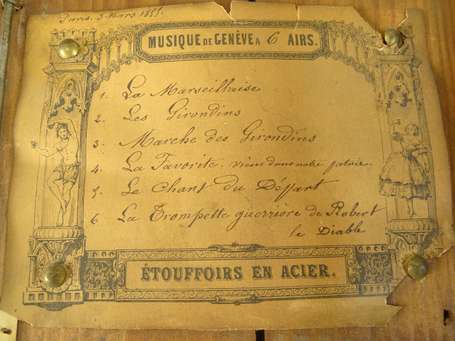 Paris, 5 Mars 1855.
MUSIQUE DE GENÈVE A 6 AIRS.
1. La Marseillaise
2. Les Girondins
3. Marche des Girondins
4. La Favorite. viens dans notre patrie.
5. Le Chant du Départ
6 La Trompette guerrière de Robert
le Diable
ÉTOUFFOIRS EN ACIER.